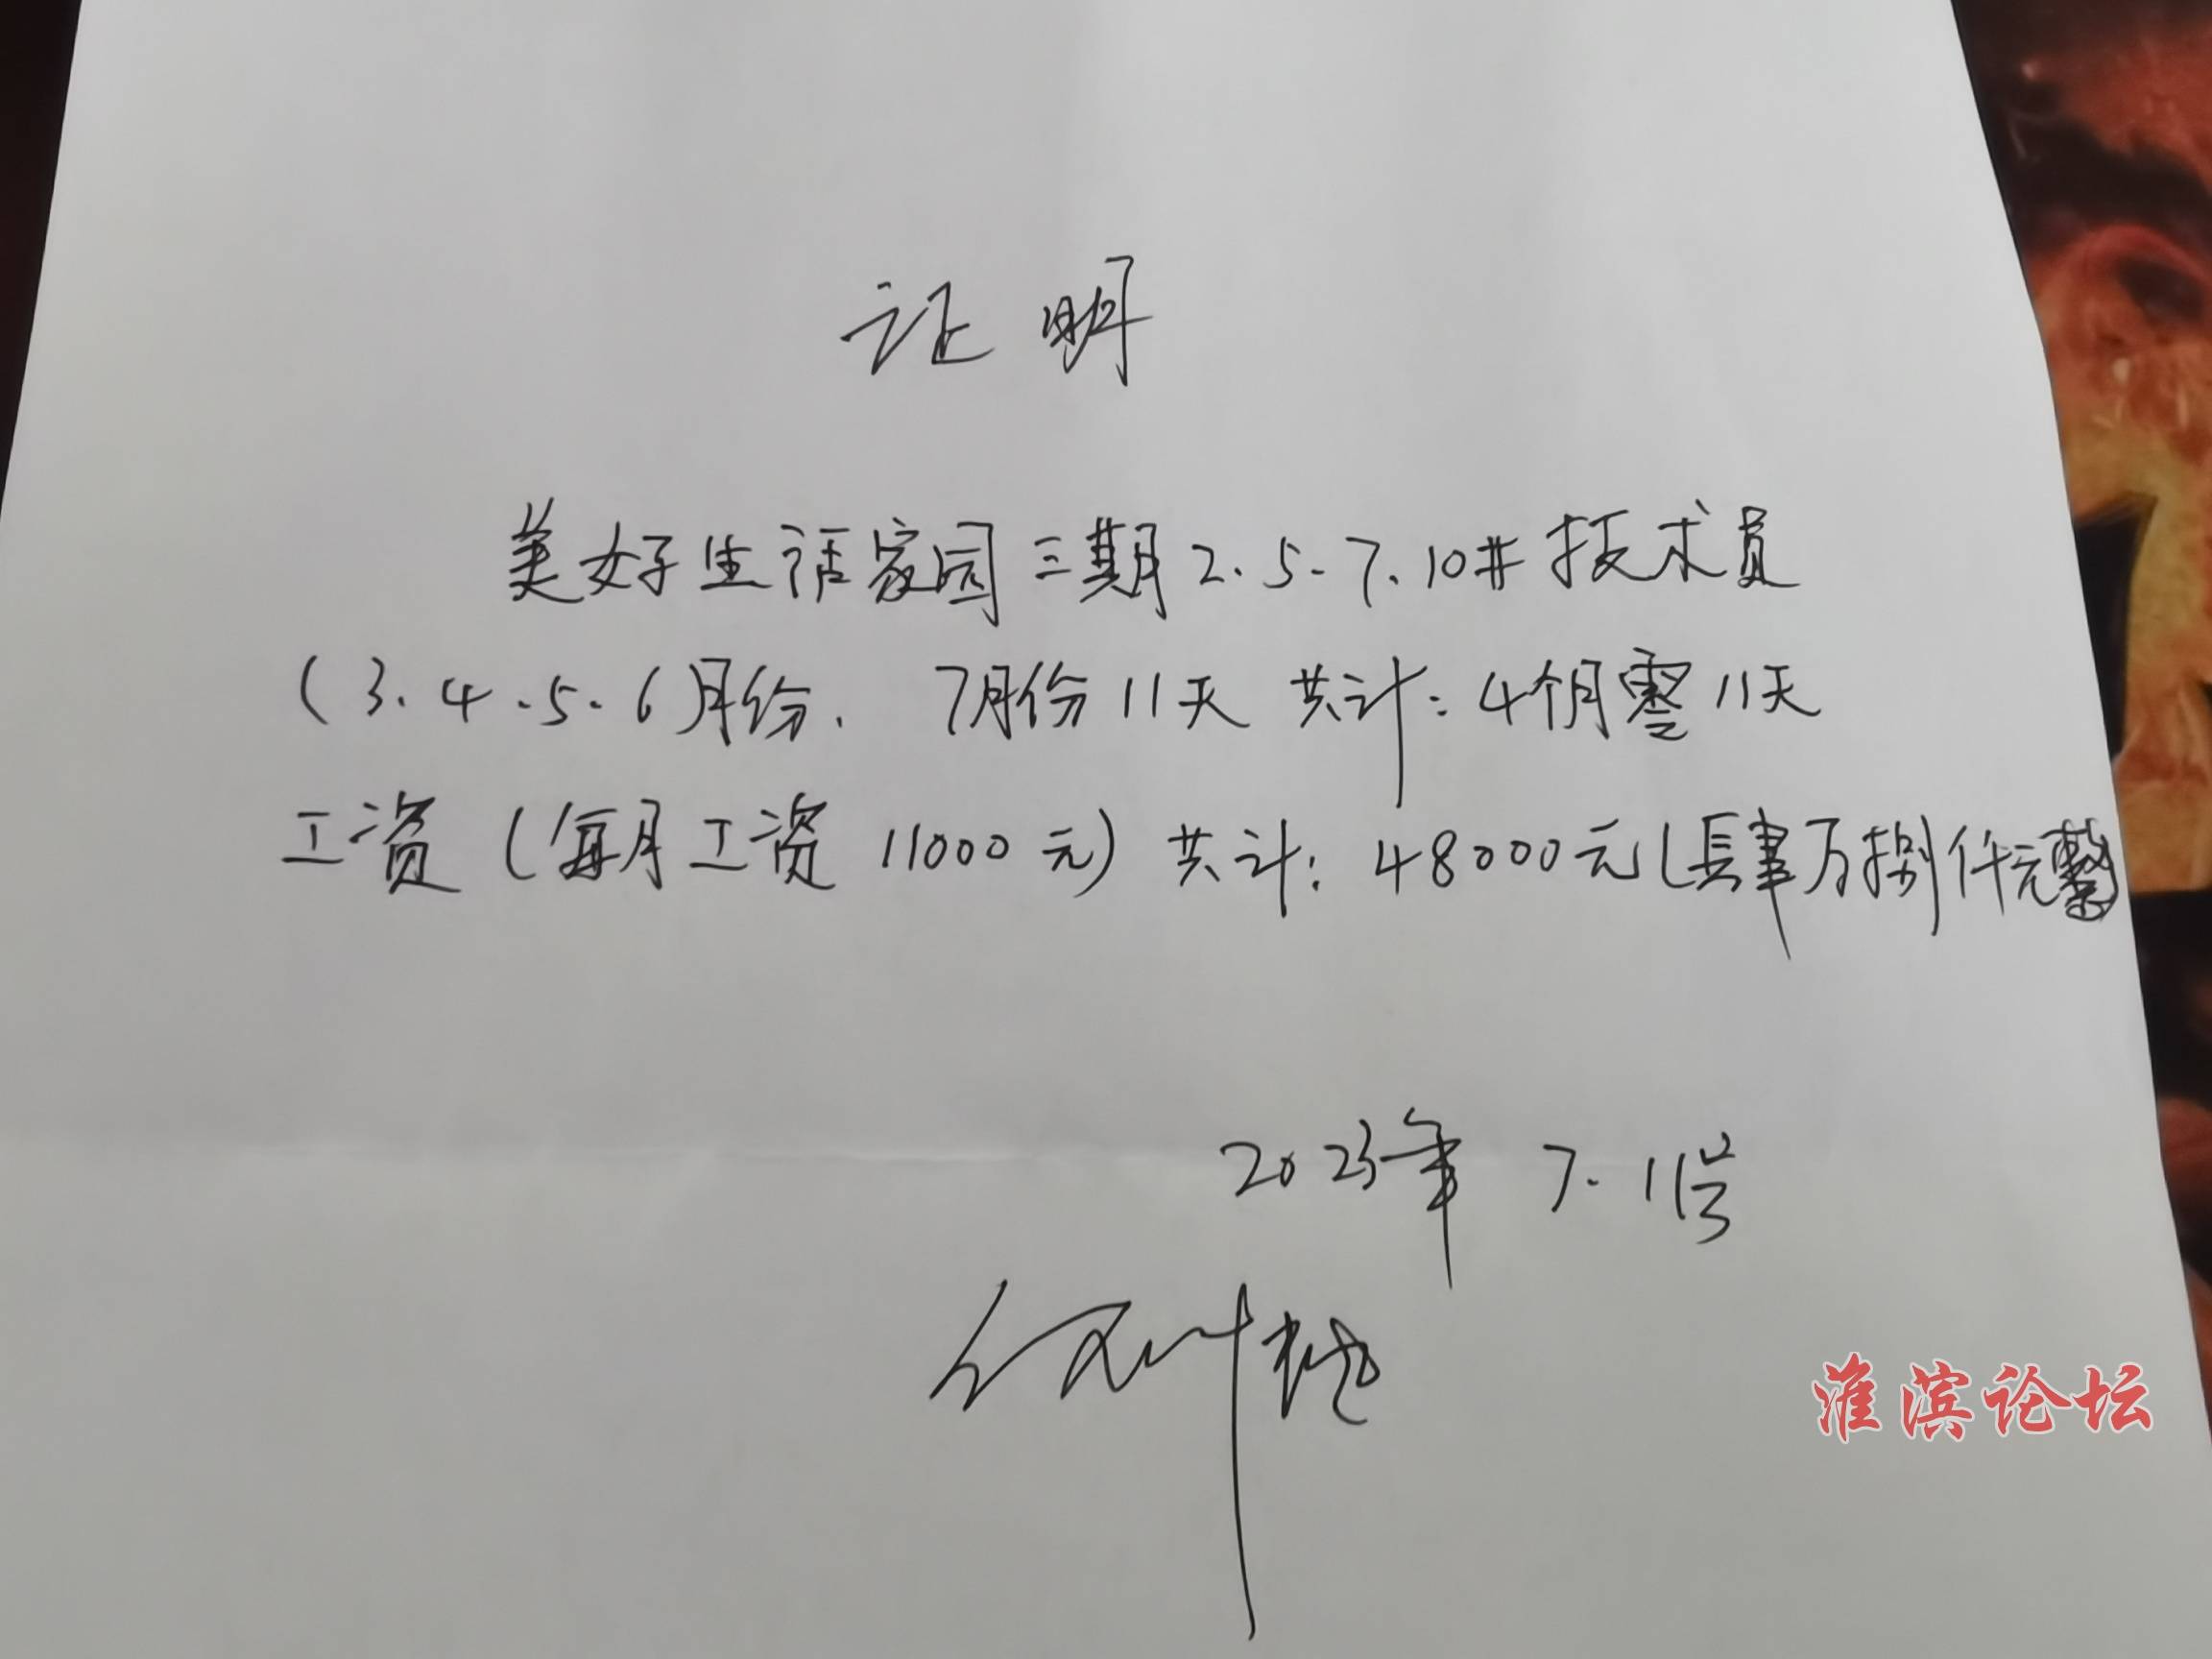 证明
美好生活家园三期2.5-7.10#技术员
(3.4.5.6)月份. 7月份11天 共计:4个月零11天
工资(每月工资11000元)共计:48000元(肆万捌仟元整
2023年 7.11号
淮滨论坛